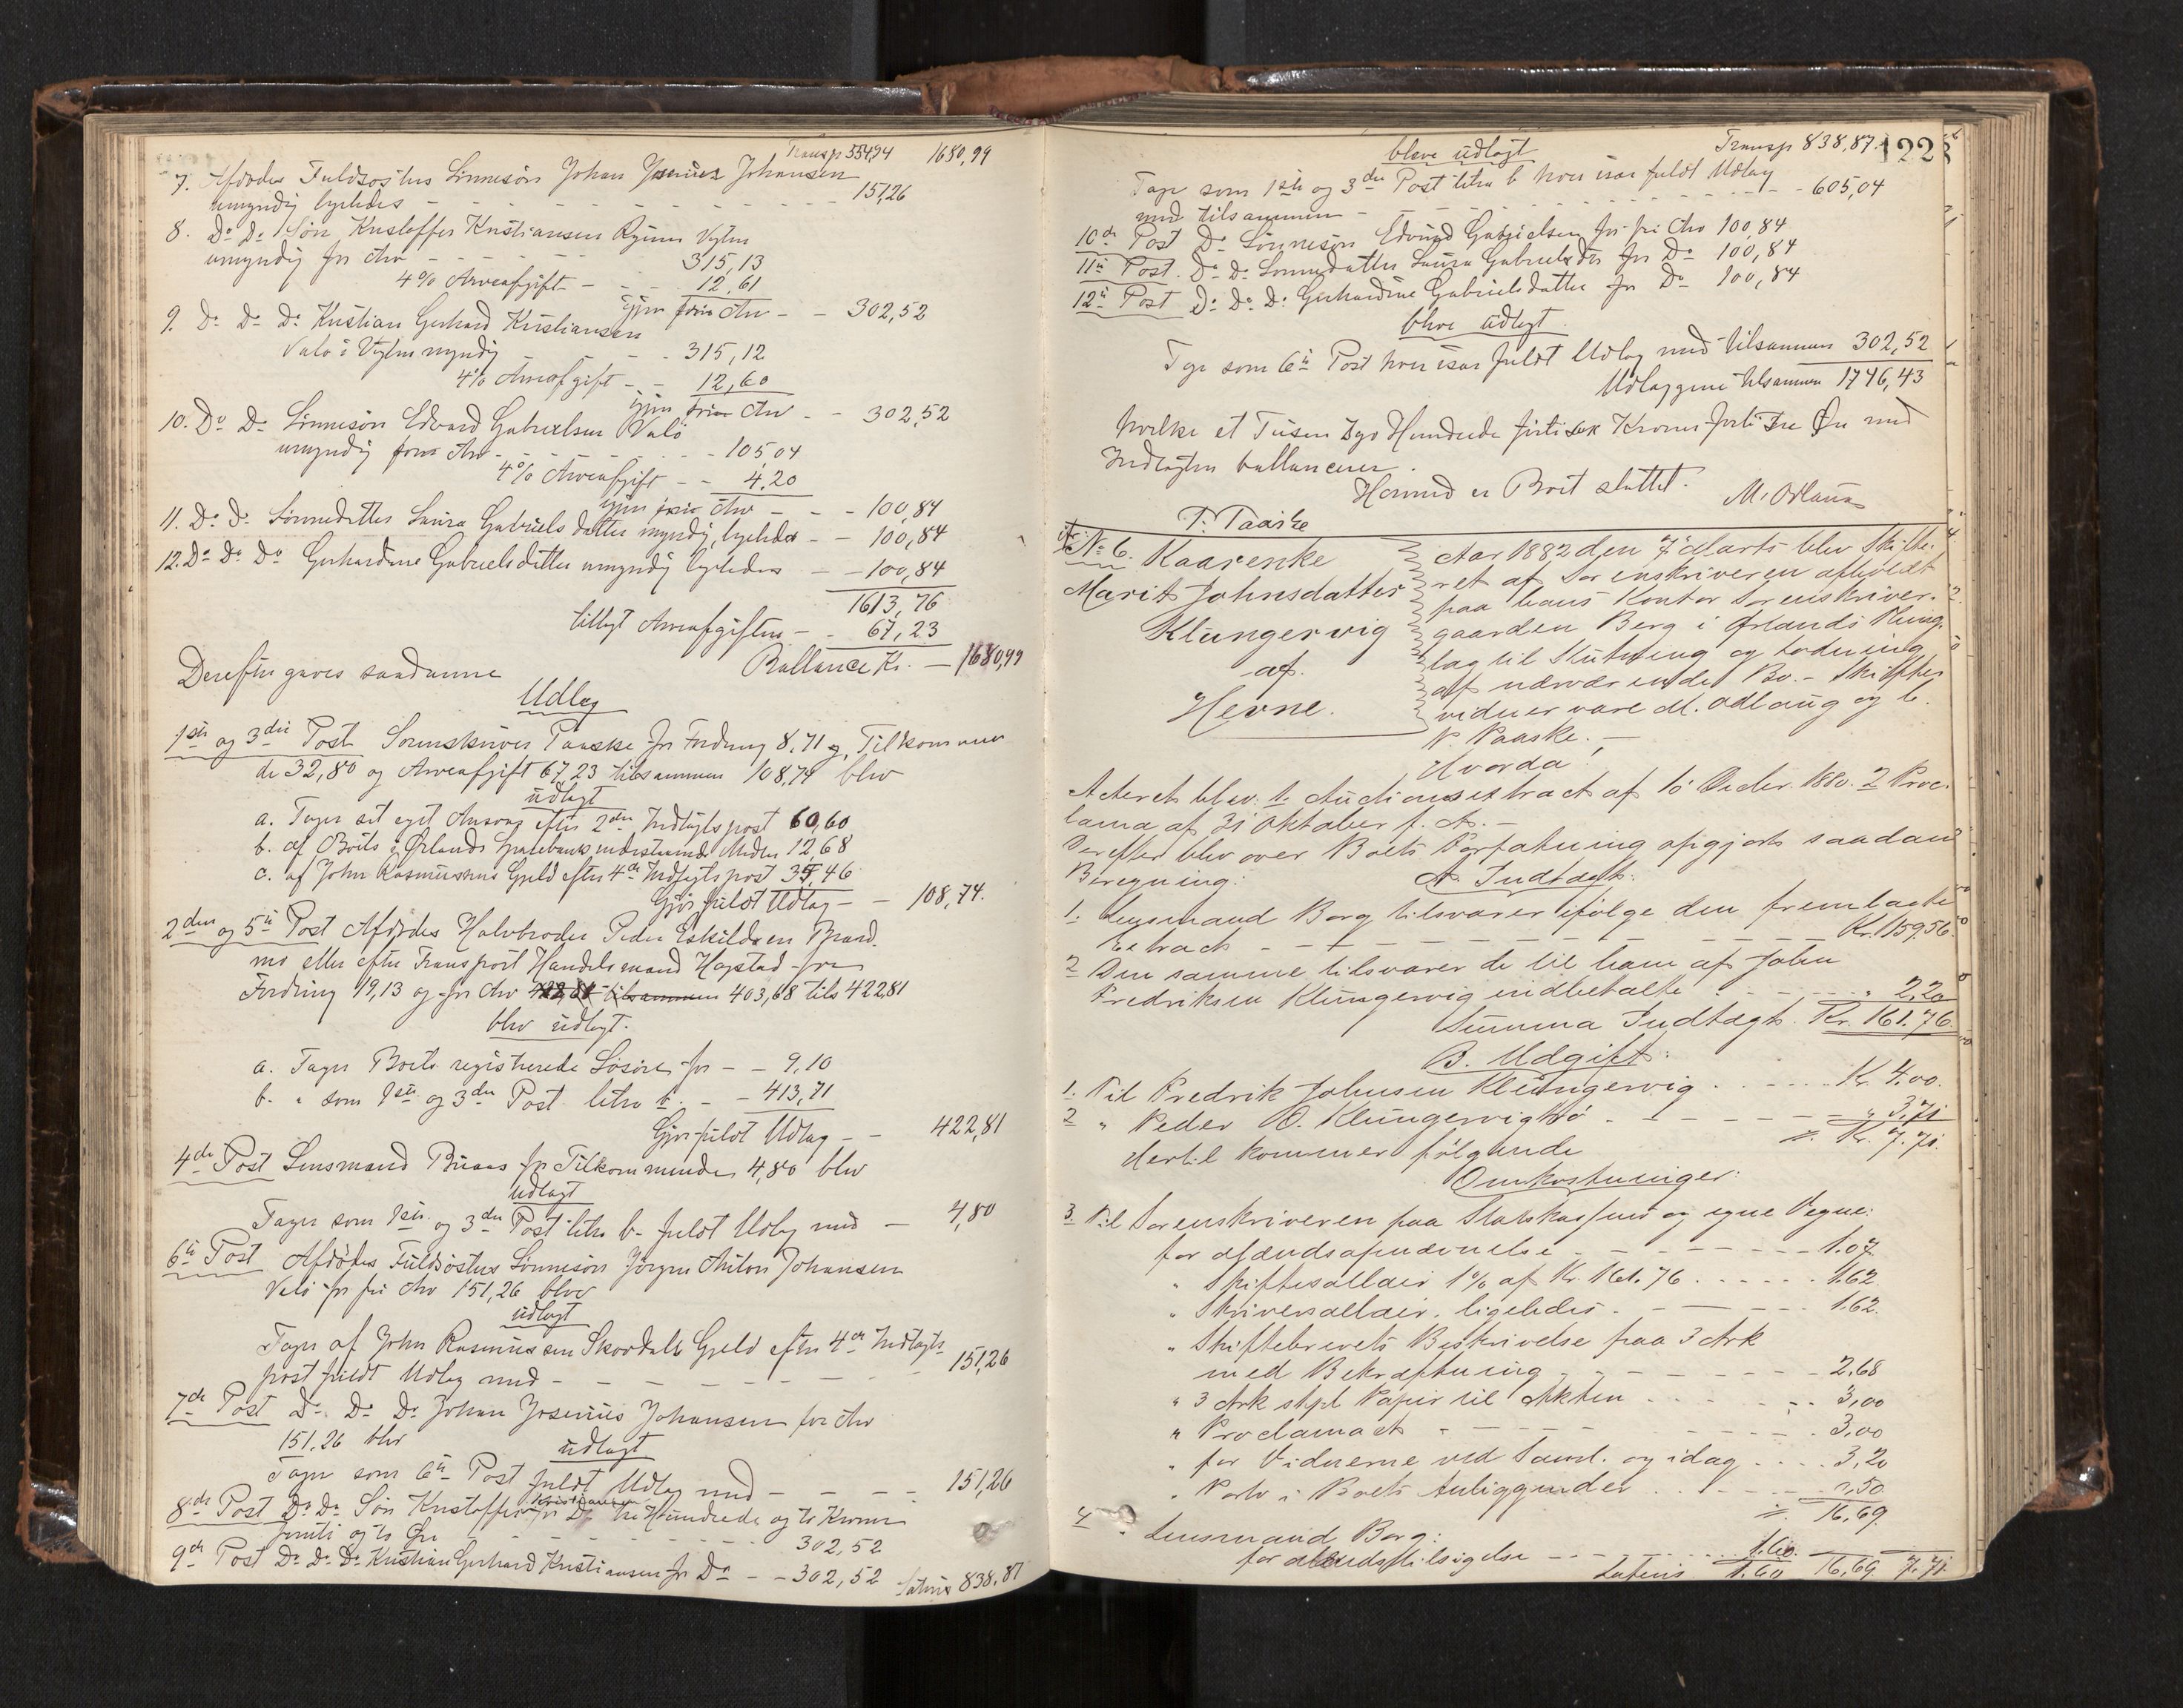 Transp 554,94 1680,99
7. Afdødes Fuldsøsters Sønnesøn Johan Josenius Johansen
umyndig ligeledes - - - 151,26
8. Do Do Søn Kristoffer Kristiansen Vylm
umyndig for Arv - - - 315,13
4% Arveafgift - - 12,61
igjen fri Arv - - 302,52
9. Do Do Do Kristian Gerhard Kristiansen
Valø i Vylm myndig - - 315,12
4% Arveafgift - - 12,60
igjen fri Arv - - 302,52
10. Do Do Sønnesøn Edvard Gabrielsen Valø
umyndig for Arv - - - 105,04
4% Arveafgift - - 4,20
igjen fri Arv - - - 100,84
11. Do Do Sønnedatter Laura Gabrielsdatter myndig, ligeledes - - 100,84
12. Do Do Do Gerhardine Gabrielsdatter umyndig ligeledes - - 100,84
1613,76
tillagt Arveafgiften - - 67,23
Ballance Kr. - 1680,99
Derefter gaves saadanne
Udlæg
1ste og 3die Post Sorenskriver Paaske for Fordring 8,71 og Tilkommen
de 32,80 og Arveafgift 67,23 tilsammen 108,74 blev
udlagt
a. Tager sit eget Ansvar efter 2den Indtægtspost 60,60
b. af Boets i Ørlands Sparebank indestaaende Midler 12,68
c. af John Rasmussens Gjeld efter 4de Indtægtspost 35,46
Gjør fuldt Udlæg - - 108,74.
2den og 5te Post Afdødes Halvbroder Peder Eskildsen
eller efter Transport Handelsmand Hagstad for
Fordring 19,13 og for Arv 422,81 tilsammen 403,68 tils 422,81
blev udlagt.
a. Tager Boets registrerede Løsøre for - - 9,10
b. " som 1ste og 3die Post litra b. - - 413,71
Gjør fuldt Udlæg - - 422,81
4de Post Lensmand for Tilkommende 4,80 blev
udlagt
Tager som 1ste og 3die Post litra b. fuldt Udlæg med - 4,80
6te Post Afdødes Fuldsøsters Sønnesøn Jørgen Anton Johansen
Valø for fri Arv 151,26 blev
udlagt
Tager af John Rasmussen Skordals Gjeld efter 4de Indtægts
post fuldt Udlæg med - - - 151,26
7de Post Do Do Do Johan Josenius Johansen for Arv
151,26 blev
udlagt
Tager som 6te Post fuldt Udlæg med - - - 151,26
8de Post Do Do Søn Kristoffer Kristiansen for Do tre Hundrede og to Kroner
femti og to Øre - - - 302,52
9de Post Do Do Do Kristian Gerhard Kristiansen for Do - - 302,52 Latus 838,87
Transp 838,87. 122
bleve udlagt
Tage som 1ste og 3die Post litra b hver især fuldt Udlæg
med tilsammen - - - 605,04
10de Post Do Sønnesøn Edvard Gabrielsen for fri Arv 100,84
11te Post. Do Do Sønnedatter Laura Gabrielsdtr for Do 100,84
12te Post Do Do Do Gerhardine Gabrielsdatter for Do 100,84
bleve udlagt
Tage som 6te Post hver især fuldt Udlæg med tilsammen 302,52
Udlæggene tilsammen 1746,43
hvilke et Tusen syv Hundrede førti sex Kroner førti tre Øre med
Indtægten ballancerer.
Hermed er Boet sluttet.
M. Odlaug
P. Paaske
No 6. Kaarenke
Marit Johnsdatter
Klungervig
af
Hevne.
Aar 1882 den 7de Marts blev Skifte-
ret af Sorenskriveren afholdt
paa hans Kontor Sorenskriver-
gaarden Berg i Ørlands Thing-
lag til Slutning og Lodning
af nærværende Bo. - Skifte
vidner vare M. Odlaug og
P. Paaske. -
Hvorda
Acteret blev: 1. Auctionsextract af 10 Decbr. 1880. 2 Proc-
lama af 31 Oktober f. A. -
Derefter blev over Boets Forfatning opgjort saadan
Beregning:
A. Indtægt:
1. Lensmand Borg tilsvarer ifølge den fremlagte
Extract - - - Kr. 159.56.
2 Den samme tilsvarer de til ham af John
Fredriksen Klungervig indbetalte - - - " 2,20
Summa Indtægt. Kr. 161.76.
B. Udgift:
1. Til Fredrik Johnsen Klungervig - - - Kr. 4.00.
2 " Peder O. Klungervigtrø - - - " 3.71
Kr. 7.71.
Hertil kommer følgende
Omkostninger:
3. Til Sorenskriveren paa Statskassens og egne Vegne:
for Dødsanmeldelse - - - 1.07
" Skiftesallair 1% af Kr. 161.76 - - - 1.62.
" Skriversallair. ligeledes - - - 1.62.
" Skiftebrevets Beskrivelse paa 3 Ark
med Bekræftning - - - 2,68
" 3 Ark stpl. Papir til Akten - - - 3,00
" Proclamaet - - - 3,00
" for Vidnerne ved Saml. og idag - - - 3,20
" Porto i Boets Anliggender - - - 0,50
16,69.
4 " Lensmand Borg:
for - - - 1.60.
Latus 1.60 16,69 7.71.